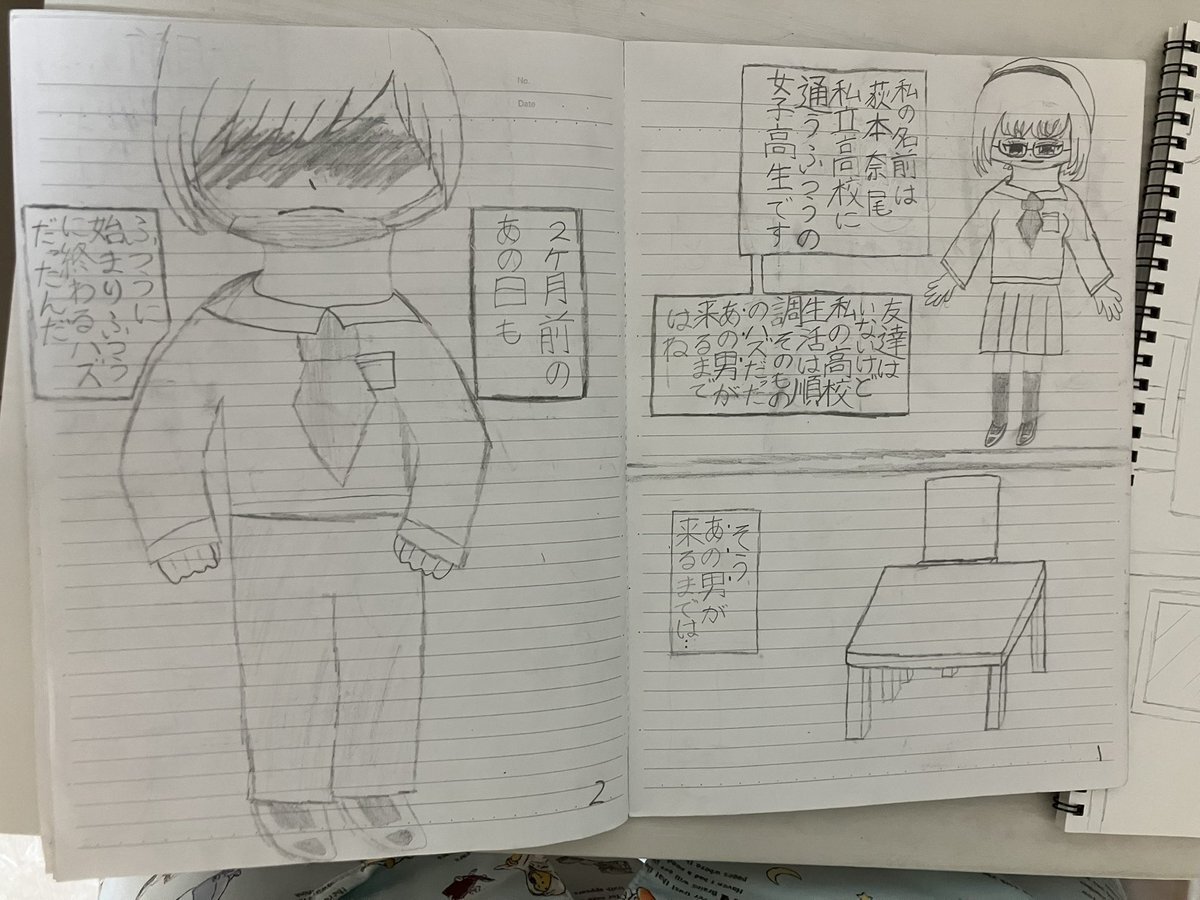 私の名前は
荻本奈尾
私立高校に
通うふつうの
女子高生です
友達は
いないけど
私の高校
生活は順
調そのもの
のハズだった
あの男が
来るまで
はね
そう
あの男が
来るまでは…
1
2ヶ月前の
あの日も
ふつうに
始まりふつう
に終わるハズ
だったんだ
2
No.
Date